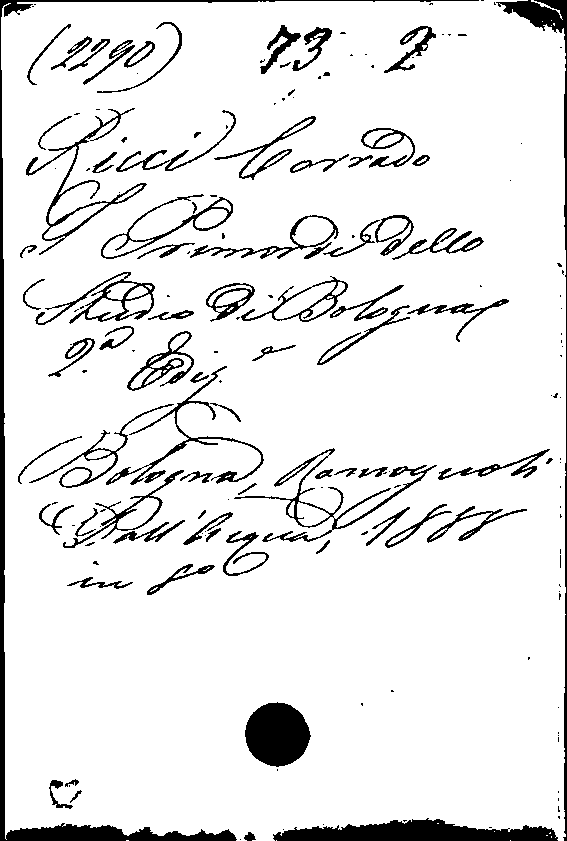 (2290) 73 2
Ricci Corrado
I Primordi dello
Studio di Bologna
2.a Ediz.e
Bologna, Romagnoli
Dall'Acqua, 1888
in 8o